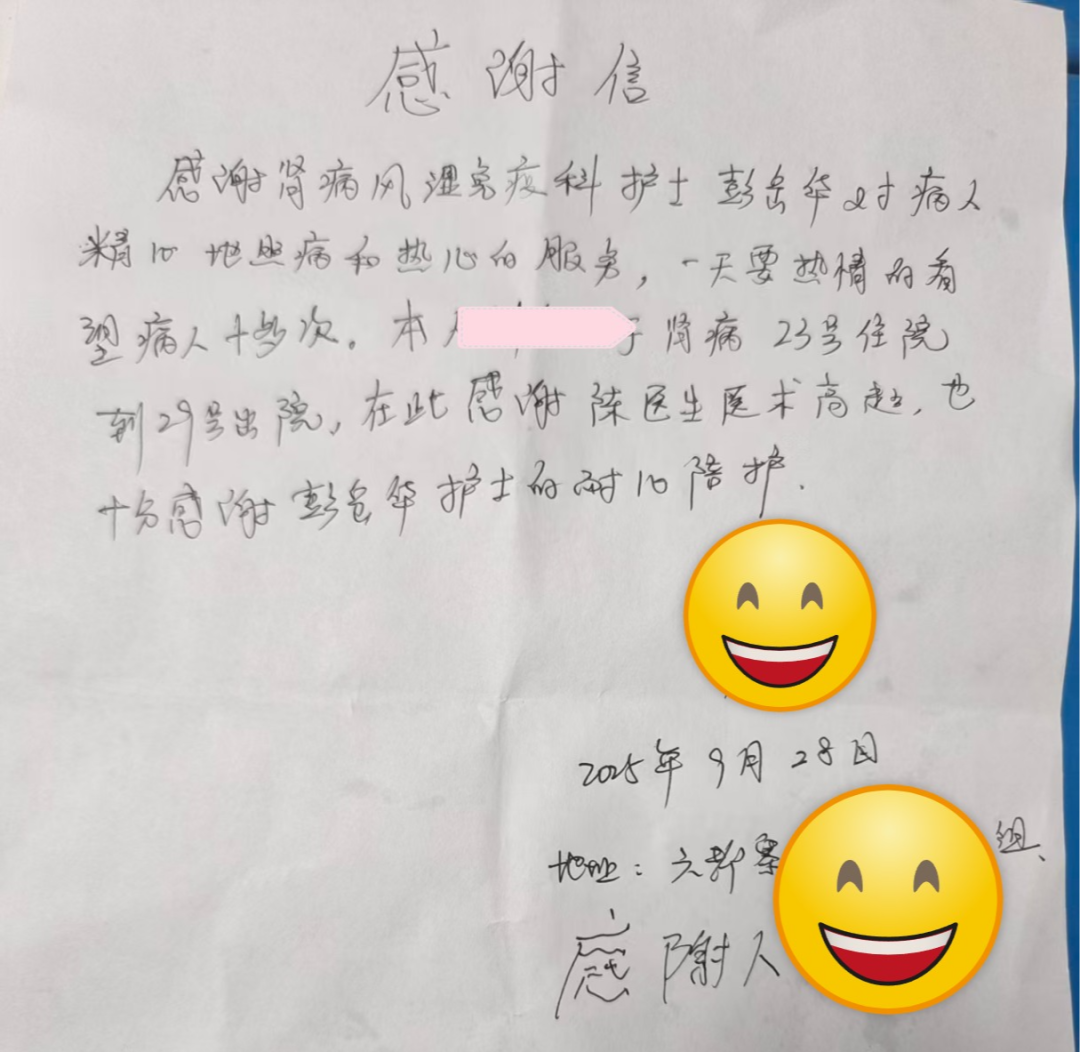 感谢信
感谢肾病风湿免疫科护士彭岳华对病人
精心地照病和热心的服务，一天要热情的看
望病人十多次。本人 于肾病23号住院
到29号出院，在此感谢陈医生医术高超，也
十分感谢彭岳华护士的耐心陪护.
2025年9月28日
地址：六新寨 组、
感谢人